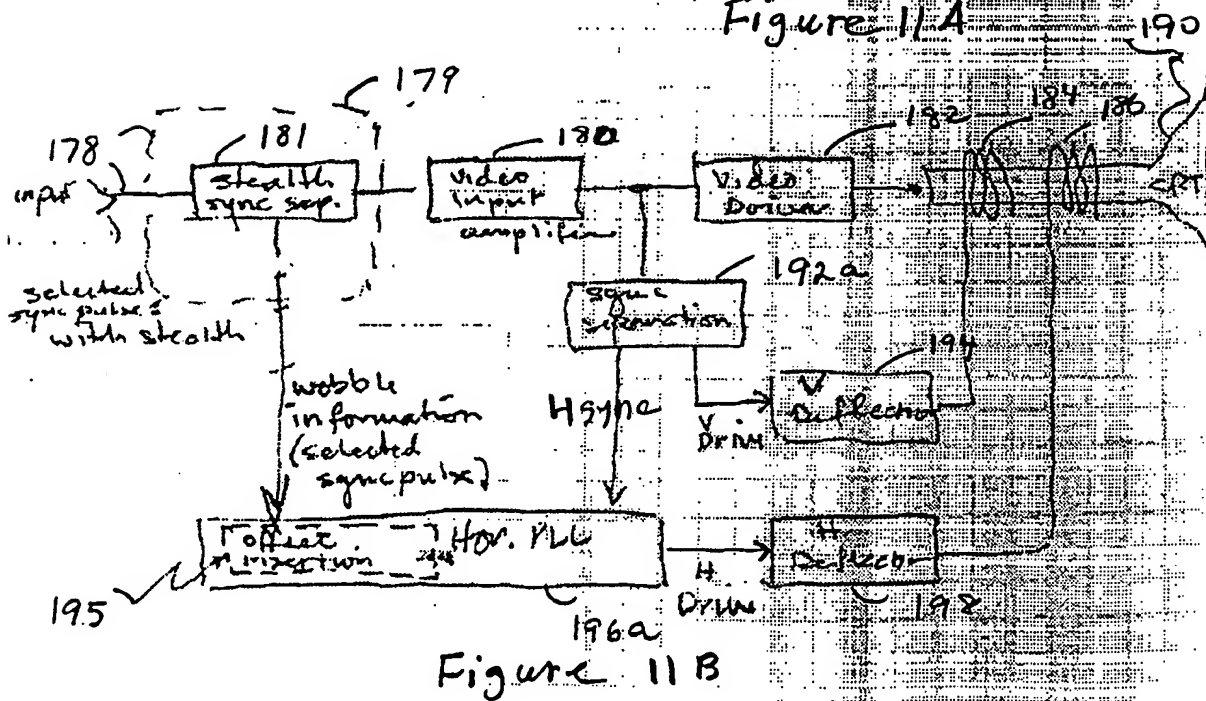 Figure 11A
190
179
178
181
180
182
184
186
input
stealth
sync sep.
video
input
amplifier
Video
Driver
CRT
selected
sync pulses
with stealth
192a
sync
separation
194
wobble
information
(selected
sync pulse)
H sync
V
Drive
V
Deflector
offset
insertion
Hor. PLL
H
Drive
H
Deflector
195
196a
198
Figure 11B